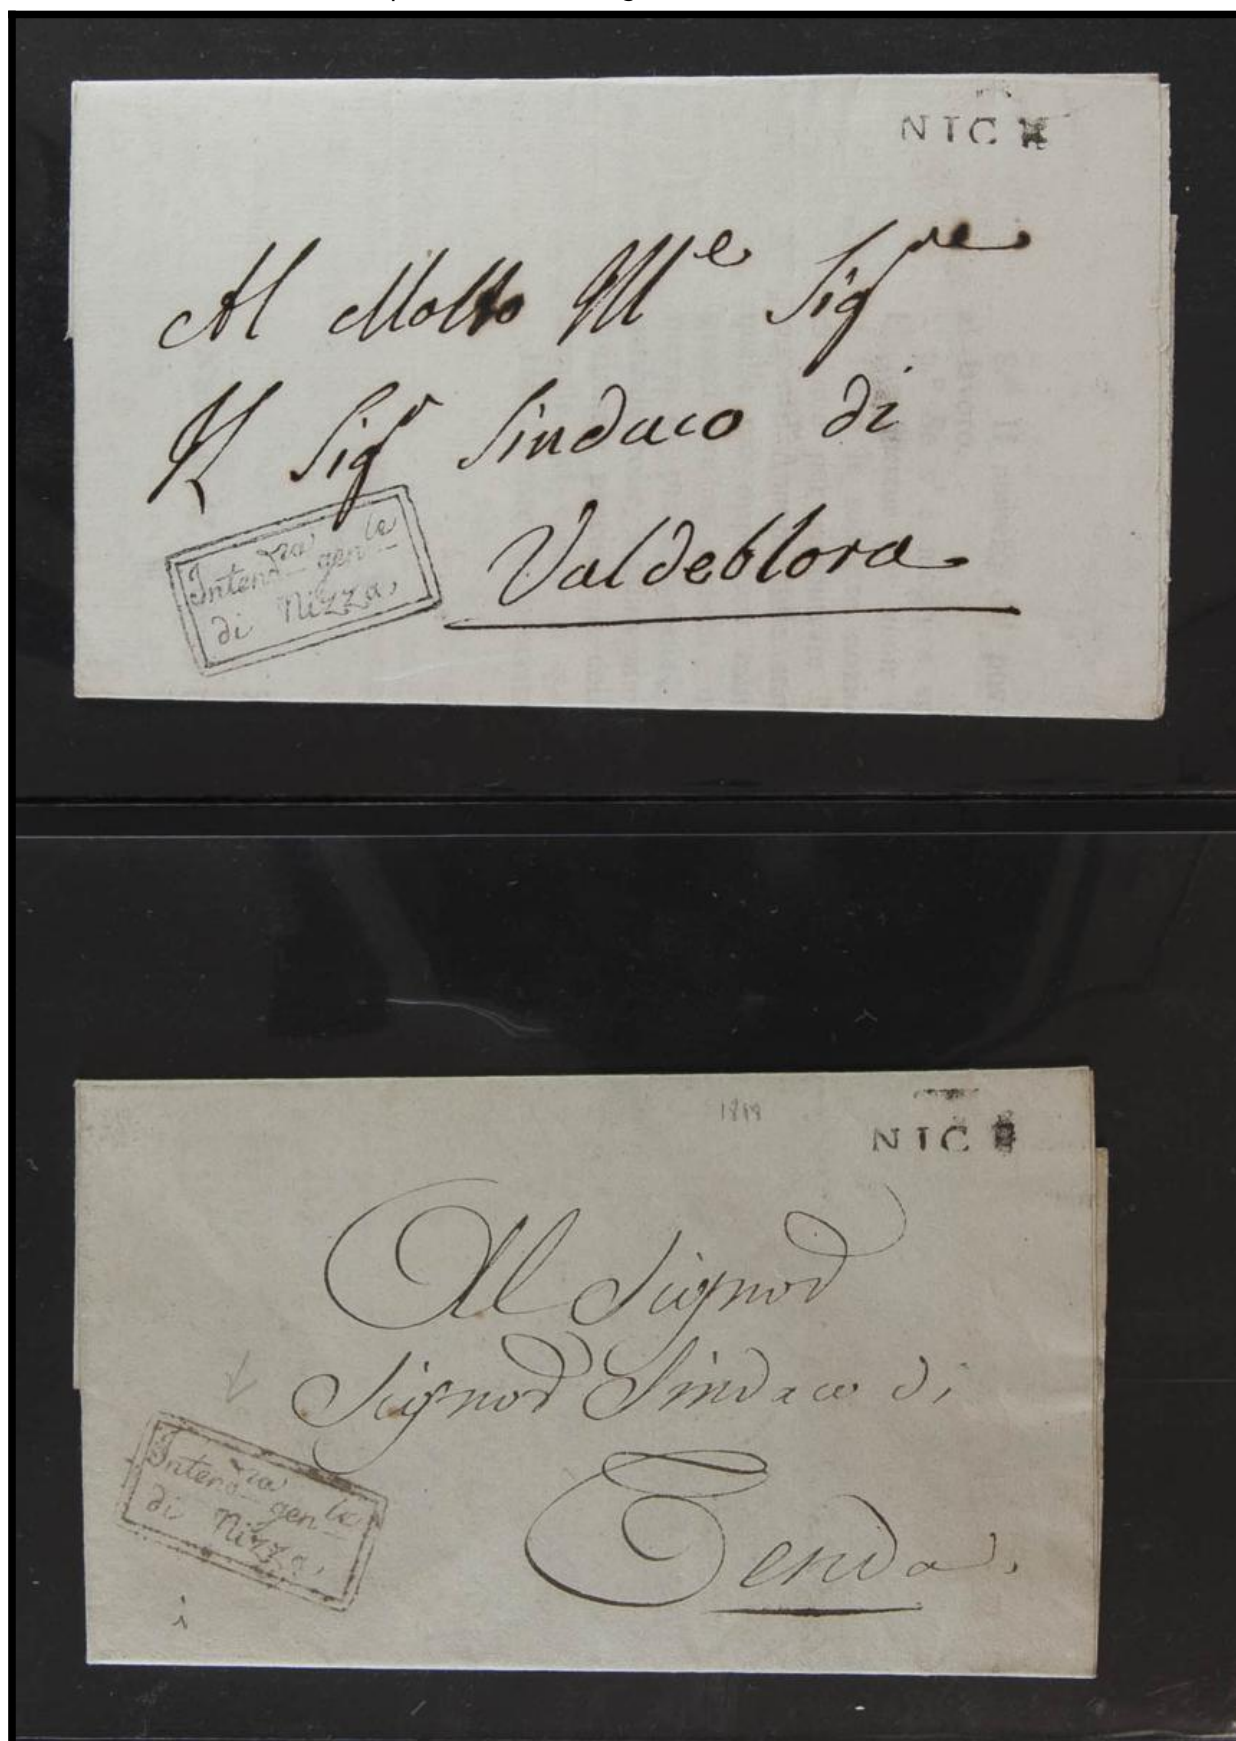 NIC
Al Molto Ill.e Sig.re
Il Sig.r Sindaco di
Valdeblora
Intend.za gen.le
di Nizza,
1818
NIC
Al Signor
Signor Sindaco di
Tenda.
Intend.za gen.le
di Nizza,